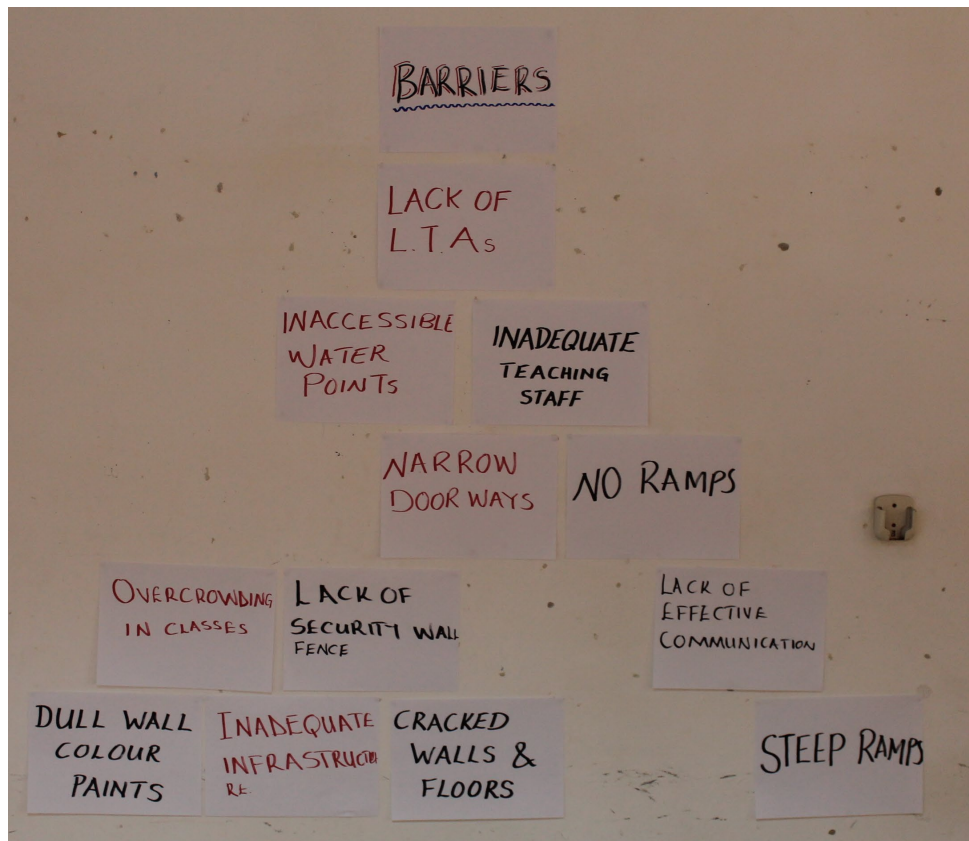 BARRIERS
LACK OF
L.T.As
INACCESSIBLE
WATER
POINTS
INADEQUATE
TEACHING
STAFF
NARROW
DOOR WAYS
NO RAMPS
OVERCROWDING
IN CLASSES
LACK OF
SECURITY WALL
FENCE
LACK OF
EFFECTIVE
COMMUNICATION
DULL WALL
COLOUR
PAINTS
INADEQUATE
INFRASTRUCTU
RE.
CRACKED
WALLS &
FLOORS
STEEP RAMPS